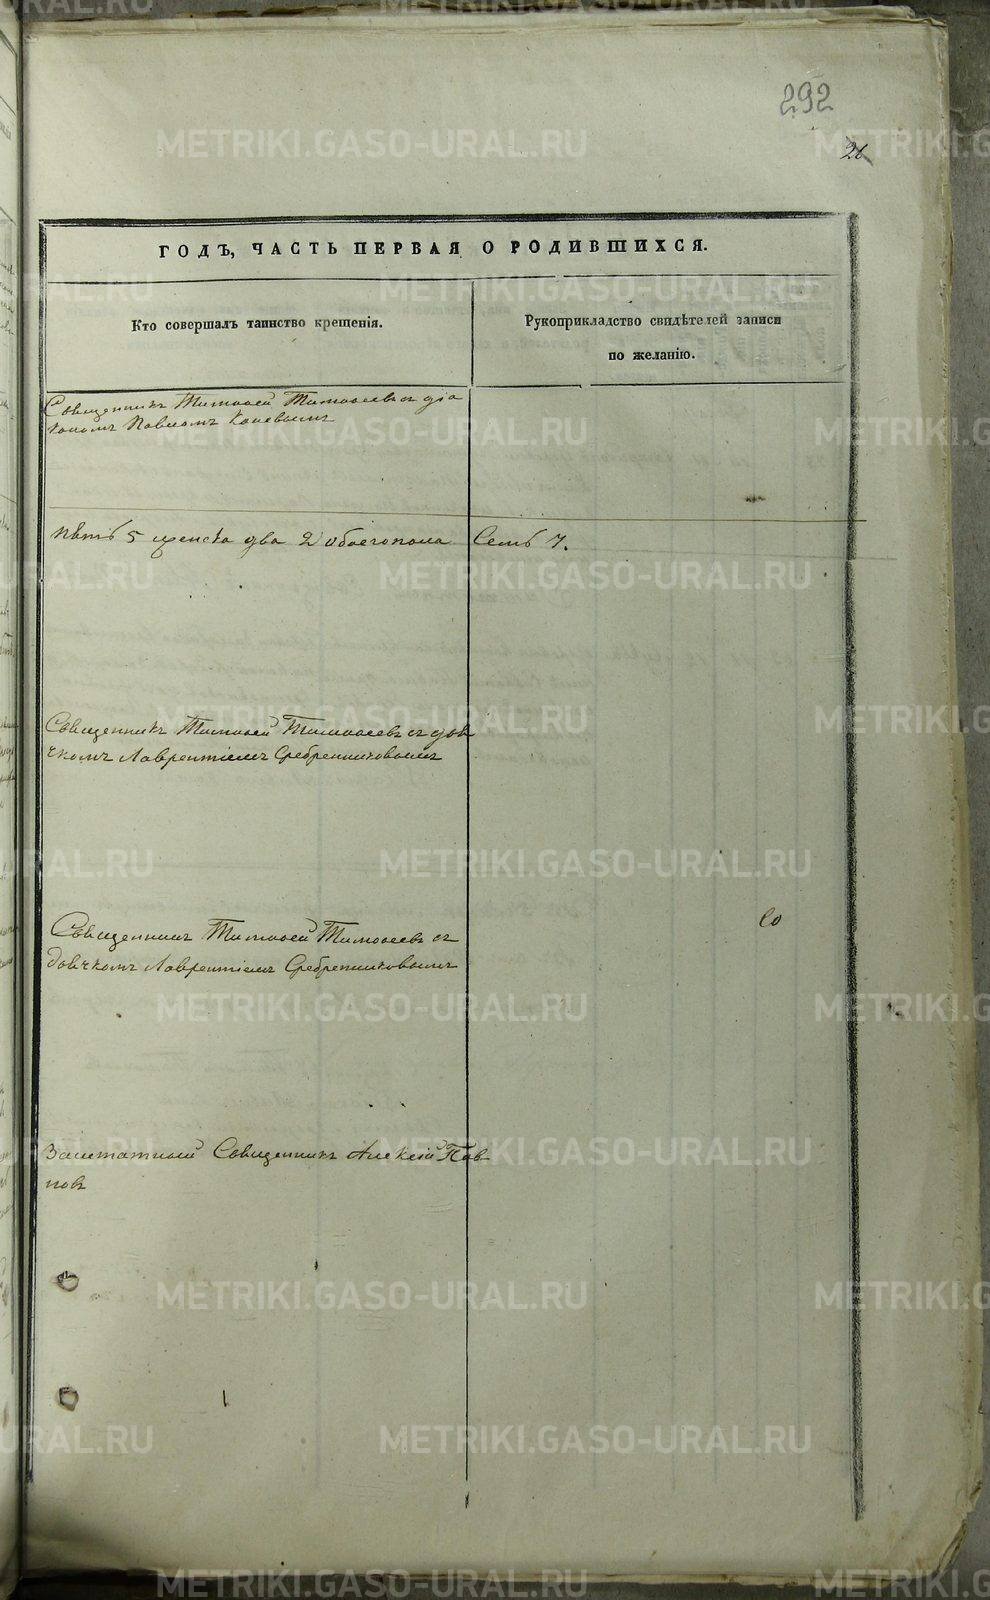 292
26
ГОДЪ, ЧАСТЬ ПЕРВАЯ О РОДИВШИХСЯ.
Кто совершалъ таинство крещенія.
Рукоприкладство свидѣтелей записи
по желанію.
Священникъ Тимоѳей Тимоѳеевъ съ діа
кономъ Павломъ
пять 5 женска два 2 обоего пола Семь 7.
Священникъ Тимоѳей Тимоѳеевъ съ дья
чкомъ Лаврентіемъ Сребренниковымъ
Священникъ Тимоѳей Тимоѳеевъ съ
дьячкомъ Лаврентіемъ Сребренниковымъ
Заштатной Священникъ Алексѣй
METRIKI.GASO-URAL.RU